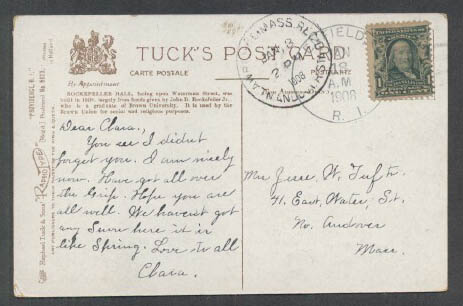 TUCK'S POST CARD
CARTE POSTALE
By Appointment
ROCKEFELLER HALL, being upon Waterman Street, was
built in 1902, largely from funds given by John D. Rockefeller Jr.
who is a graduate of Brown University. It is used by the
Brown Union for social and religious purposes.
"PROVIDENCE R. I."
Raphael Tuck & Sons'
JAN 8
1908
JAN
18
A.M
1908
R. I.
1
Dear Clara,
You see I didn't
forget you. I am nicely
now. Have got all over
the Grip. Hope you are
all well. We haven't got
any Snow here it is
like Spring. Love to all
Clara.
W. Tufts
41. East, Water, St.
No. Andover
Mass.